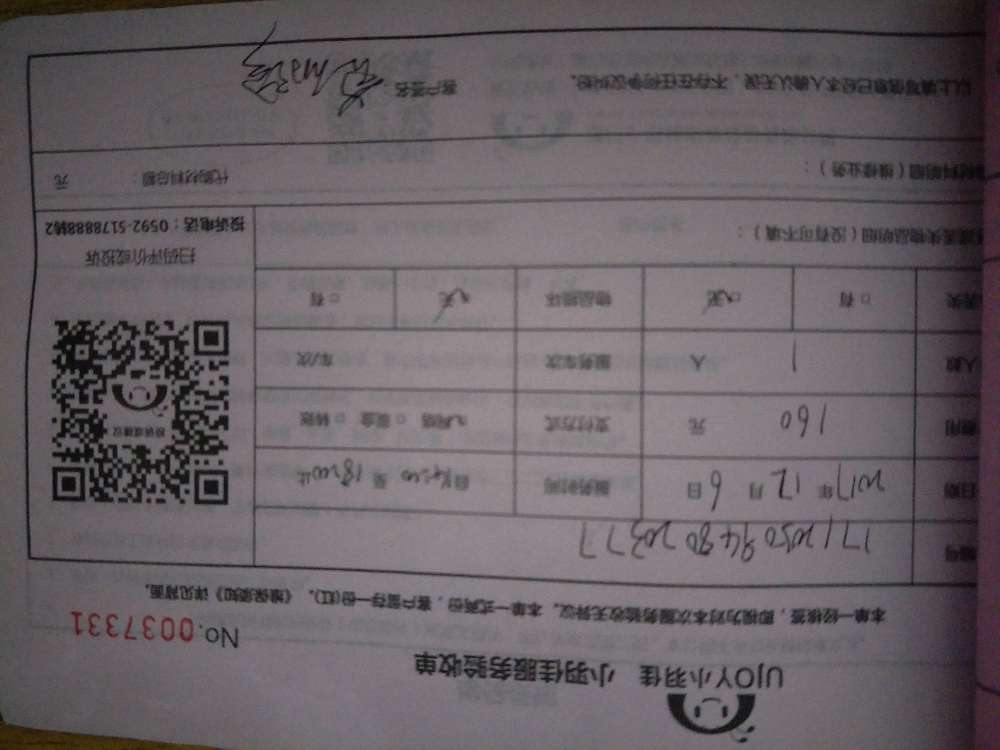 UJOY小羽佳 小羽佳服务验收单
No.0037331
本单一经核签，即视为对本次服务验收无异议。本单一式两份，客户留存一份(红)。《维保须知》详见背面。
编号
日期 2017年 12月 6日 服务时间 自14:00 至 18:00止
费用 160 元 支付方式 网络 □ 现金 □ 转账
人数 1 人 服务车次 车/次
□ 有 □无 物品损坏 □无 □ 有
投诉或建议
扫码评价或投诉
物品明细（没有可不填）：
投诉电话：0592-5178888转2
材料明细（维修业务）：
代购材料总额： 元
以上填写信息已经本人确认无误，不存在任何争议纠纷。 客户签名